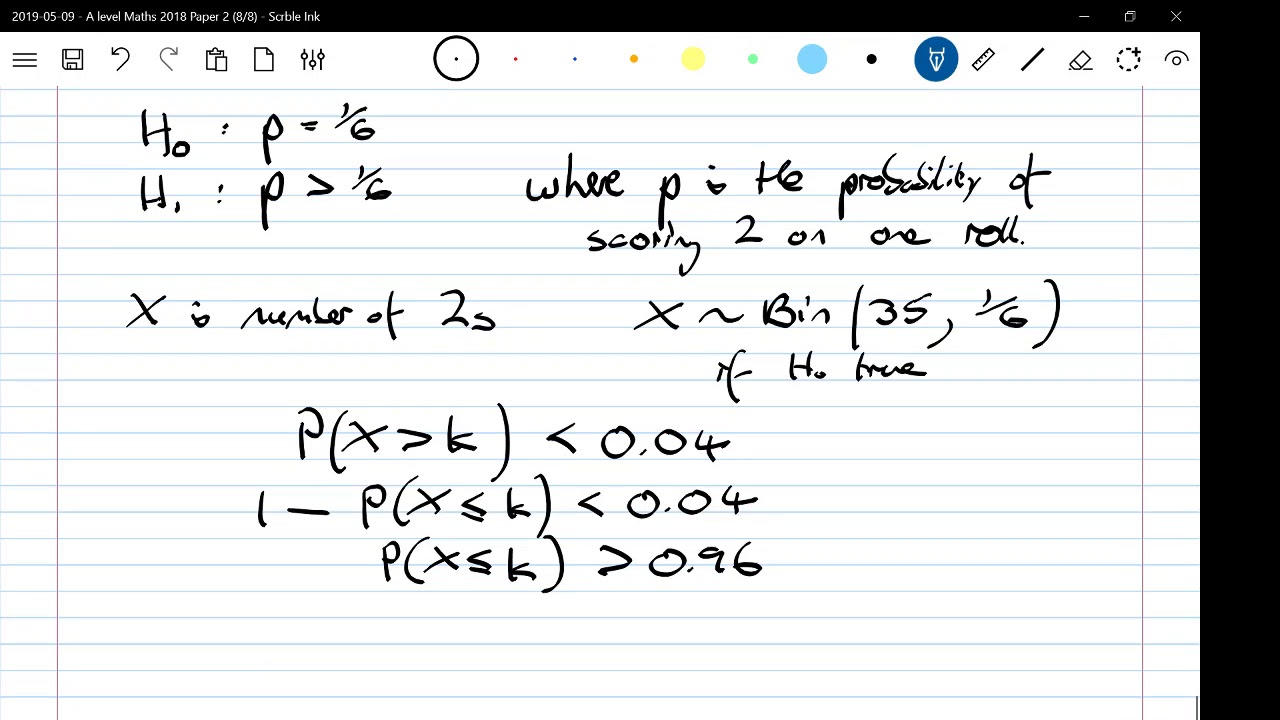 2019-05-09 - A level Maths 2018 Paper 2 (8/8) - Scrble Ink
H₀ : p = 1/6
H₁ : p > 1/6
where p is the probability of
scoring 2 on one roll.
X is number of 2s
X ~ Bin (35, 1/6)
if H₀ true
P(X > k) < 0.04
1 — P(X ≤ k) < 0.04
P(X ≤ k) > 0.96